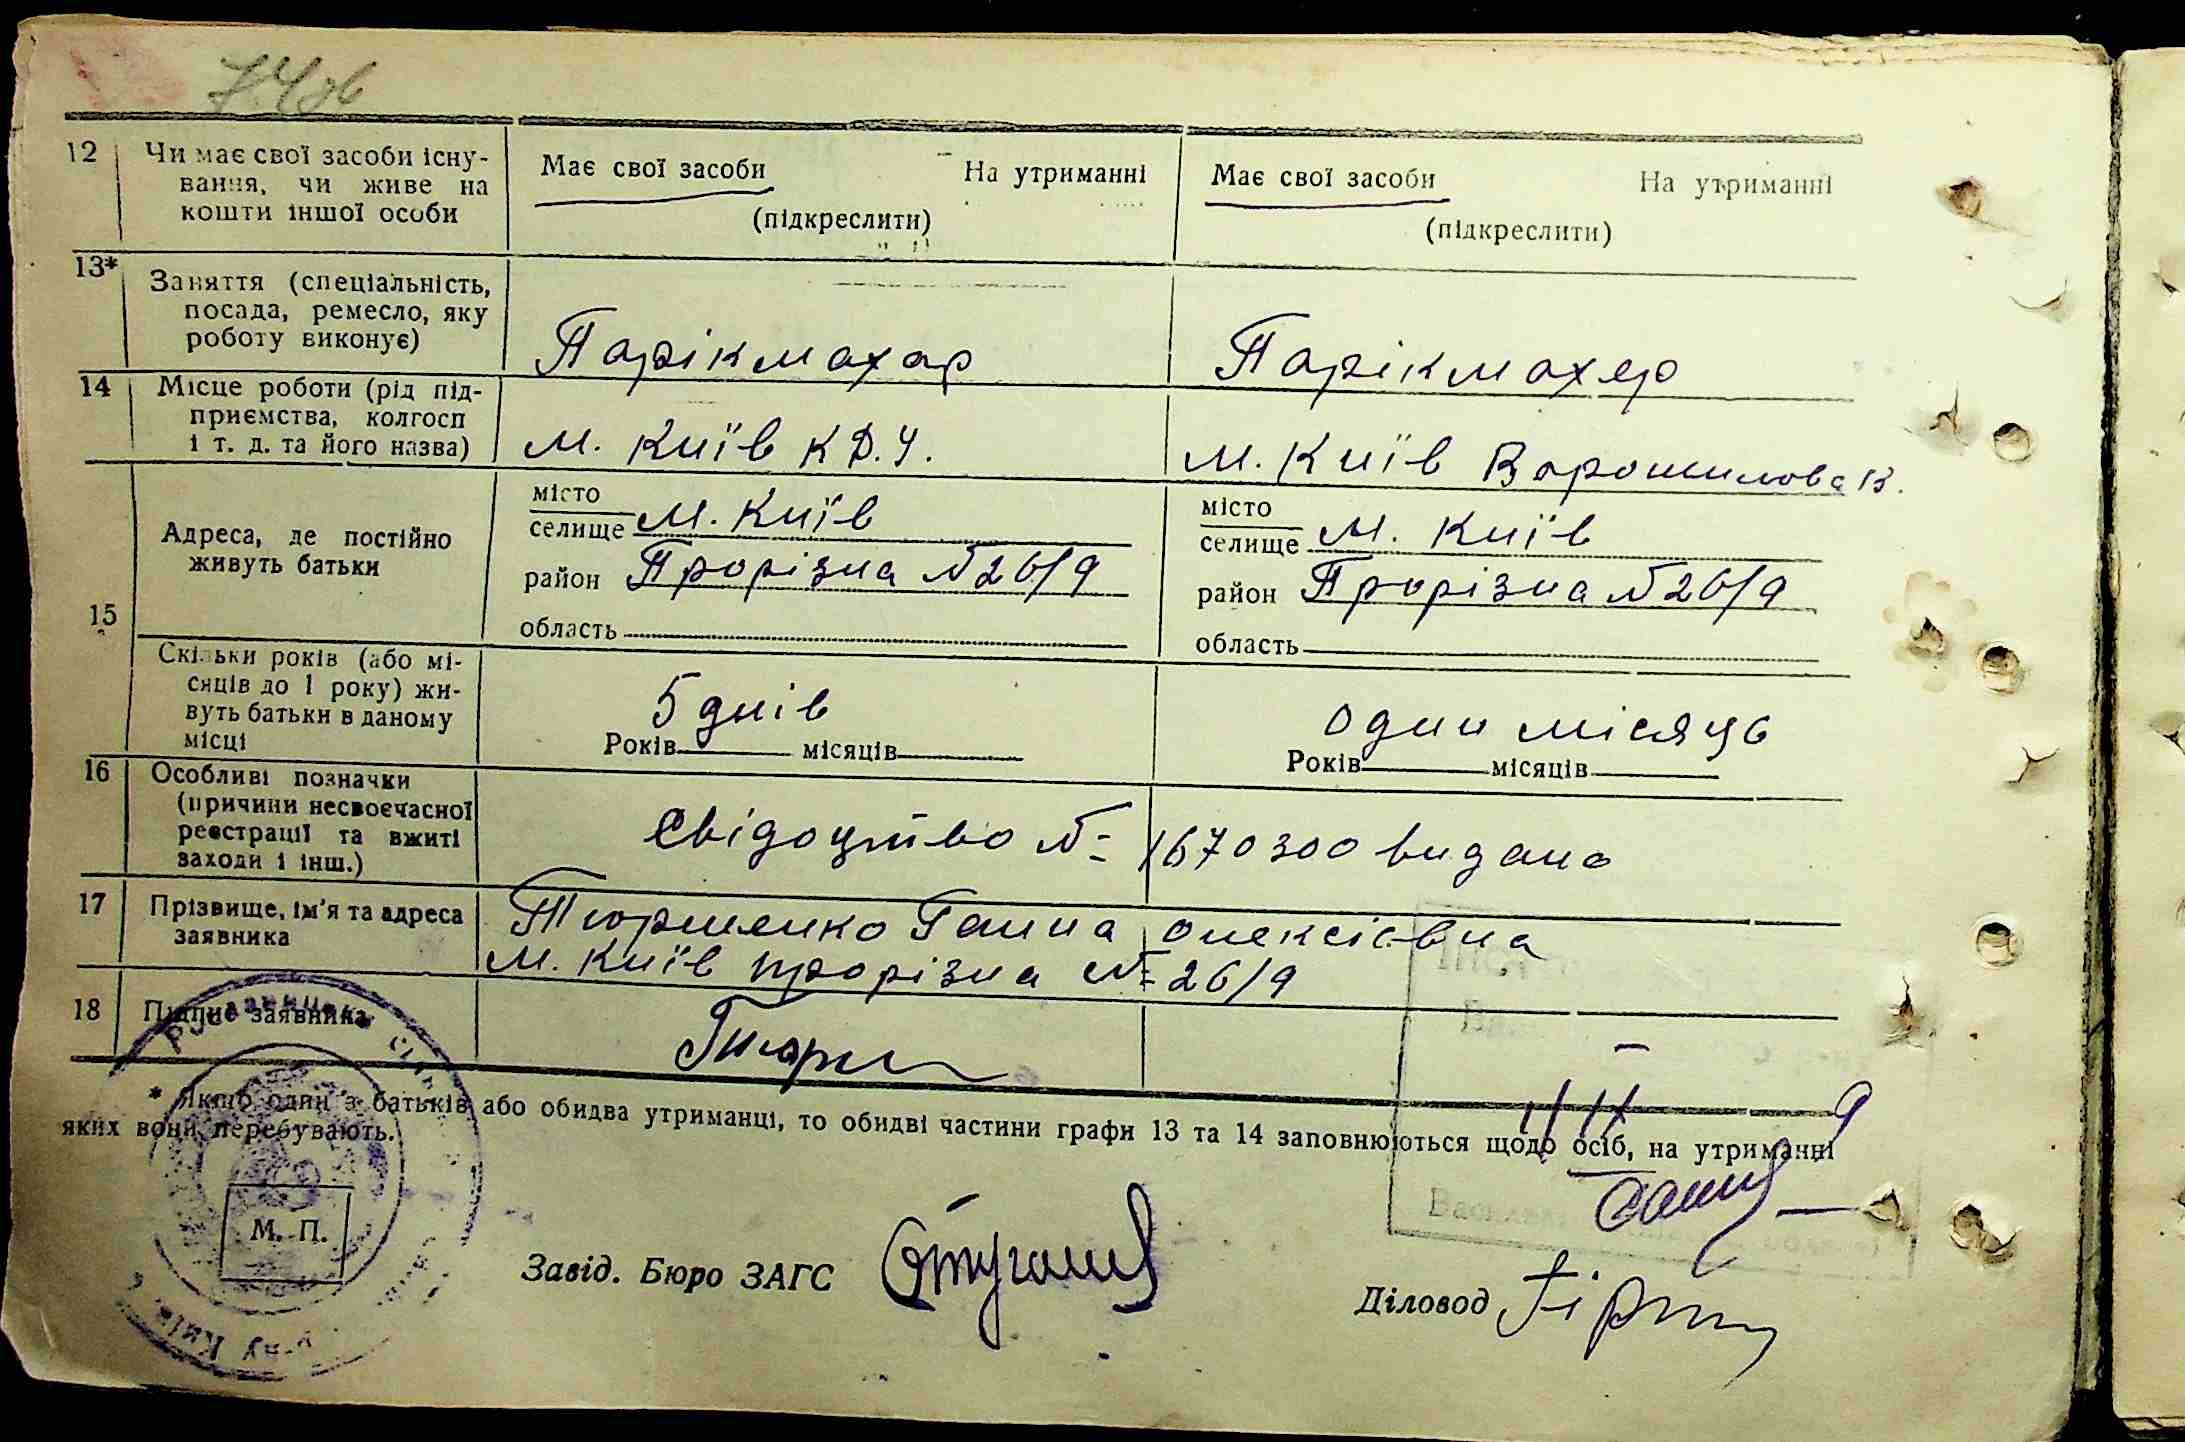 74 об
12
Чи має свої засоби існу-
вання, чи живе на
кошти іншої особи
Має свої засоби На утриманні
(підкреслити)
Має свої засоби На утриманні
(підкреслити)
13*
Заняття (спеціальність,
посада, ремесло, яку
роботу виконує)
Парікмахар
Парікмахер
14
Місце роботи (рід під-
приємства, колгосп
і т. д. та його назва)
м. Київ К Д. У.
м. Київ Ворошилова 13.
15
Адреса, де постійно
живуть батьки
місто
селище м. Київ
район Прорізна № 26/9
область
місто
селище м. Київ
район Прорізна № 26/9
область
Скільки років (або мі-
сяців до 1 року) жи-
вуть батьки в даному
місці
5 днів
Років місяців
один місяць
Років місяців
16
Особливі позначки
(причини несвоєчасної
реєстрації та вжиті
заходи і інш.)
Свідоцтво № 1670300 видано
17
Прізвище, ім'я та адреса
заявника
Тюрменко Ганна Олексієвна
м. Київ Прорізна № 26/9
18
Підпис заявника
Тюрм
* Якщо один з батьків або обидва утриманці, то обидві частини графи 13 та 14 заповнюються щодо осіб, на утриманні
яких вони перебувають.
М. П.
Завід. Бюро ЗАГС
Діловод